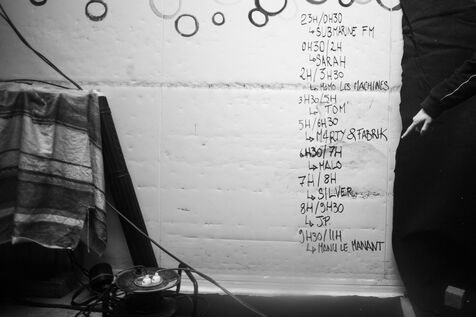 23H/0H30
↳ SUBMARINE FM
0H30/2H
↳ SARAH
2H/3H30
↳ MOMO LES MACHINES
3H30/5H
↳ TOM
5H/6H30
↳ MARTY & FABRIK
6H30/7H
↳ MALO
7H/8H
↳ SILVER
8H/9H30
↳ J.P.
9H30/11H
↳ MANU LE MANANT